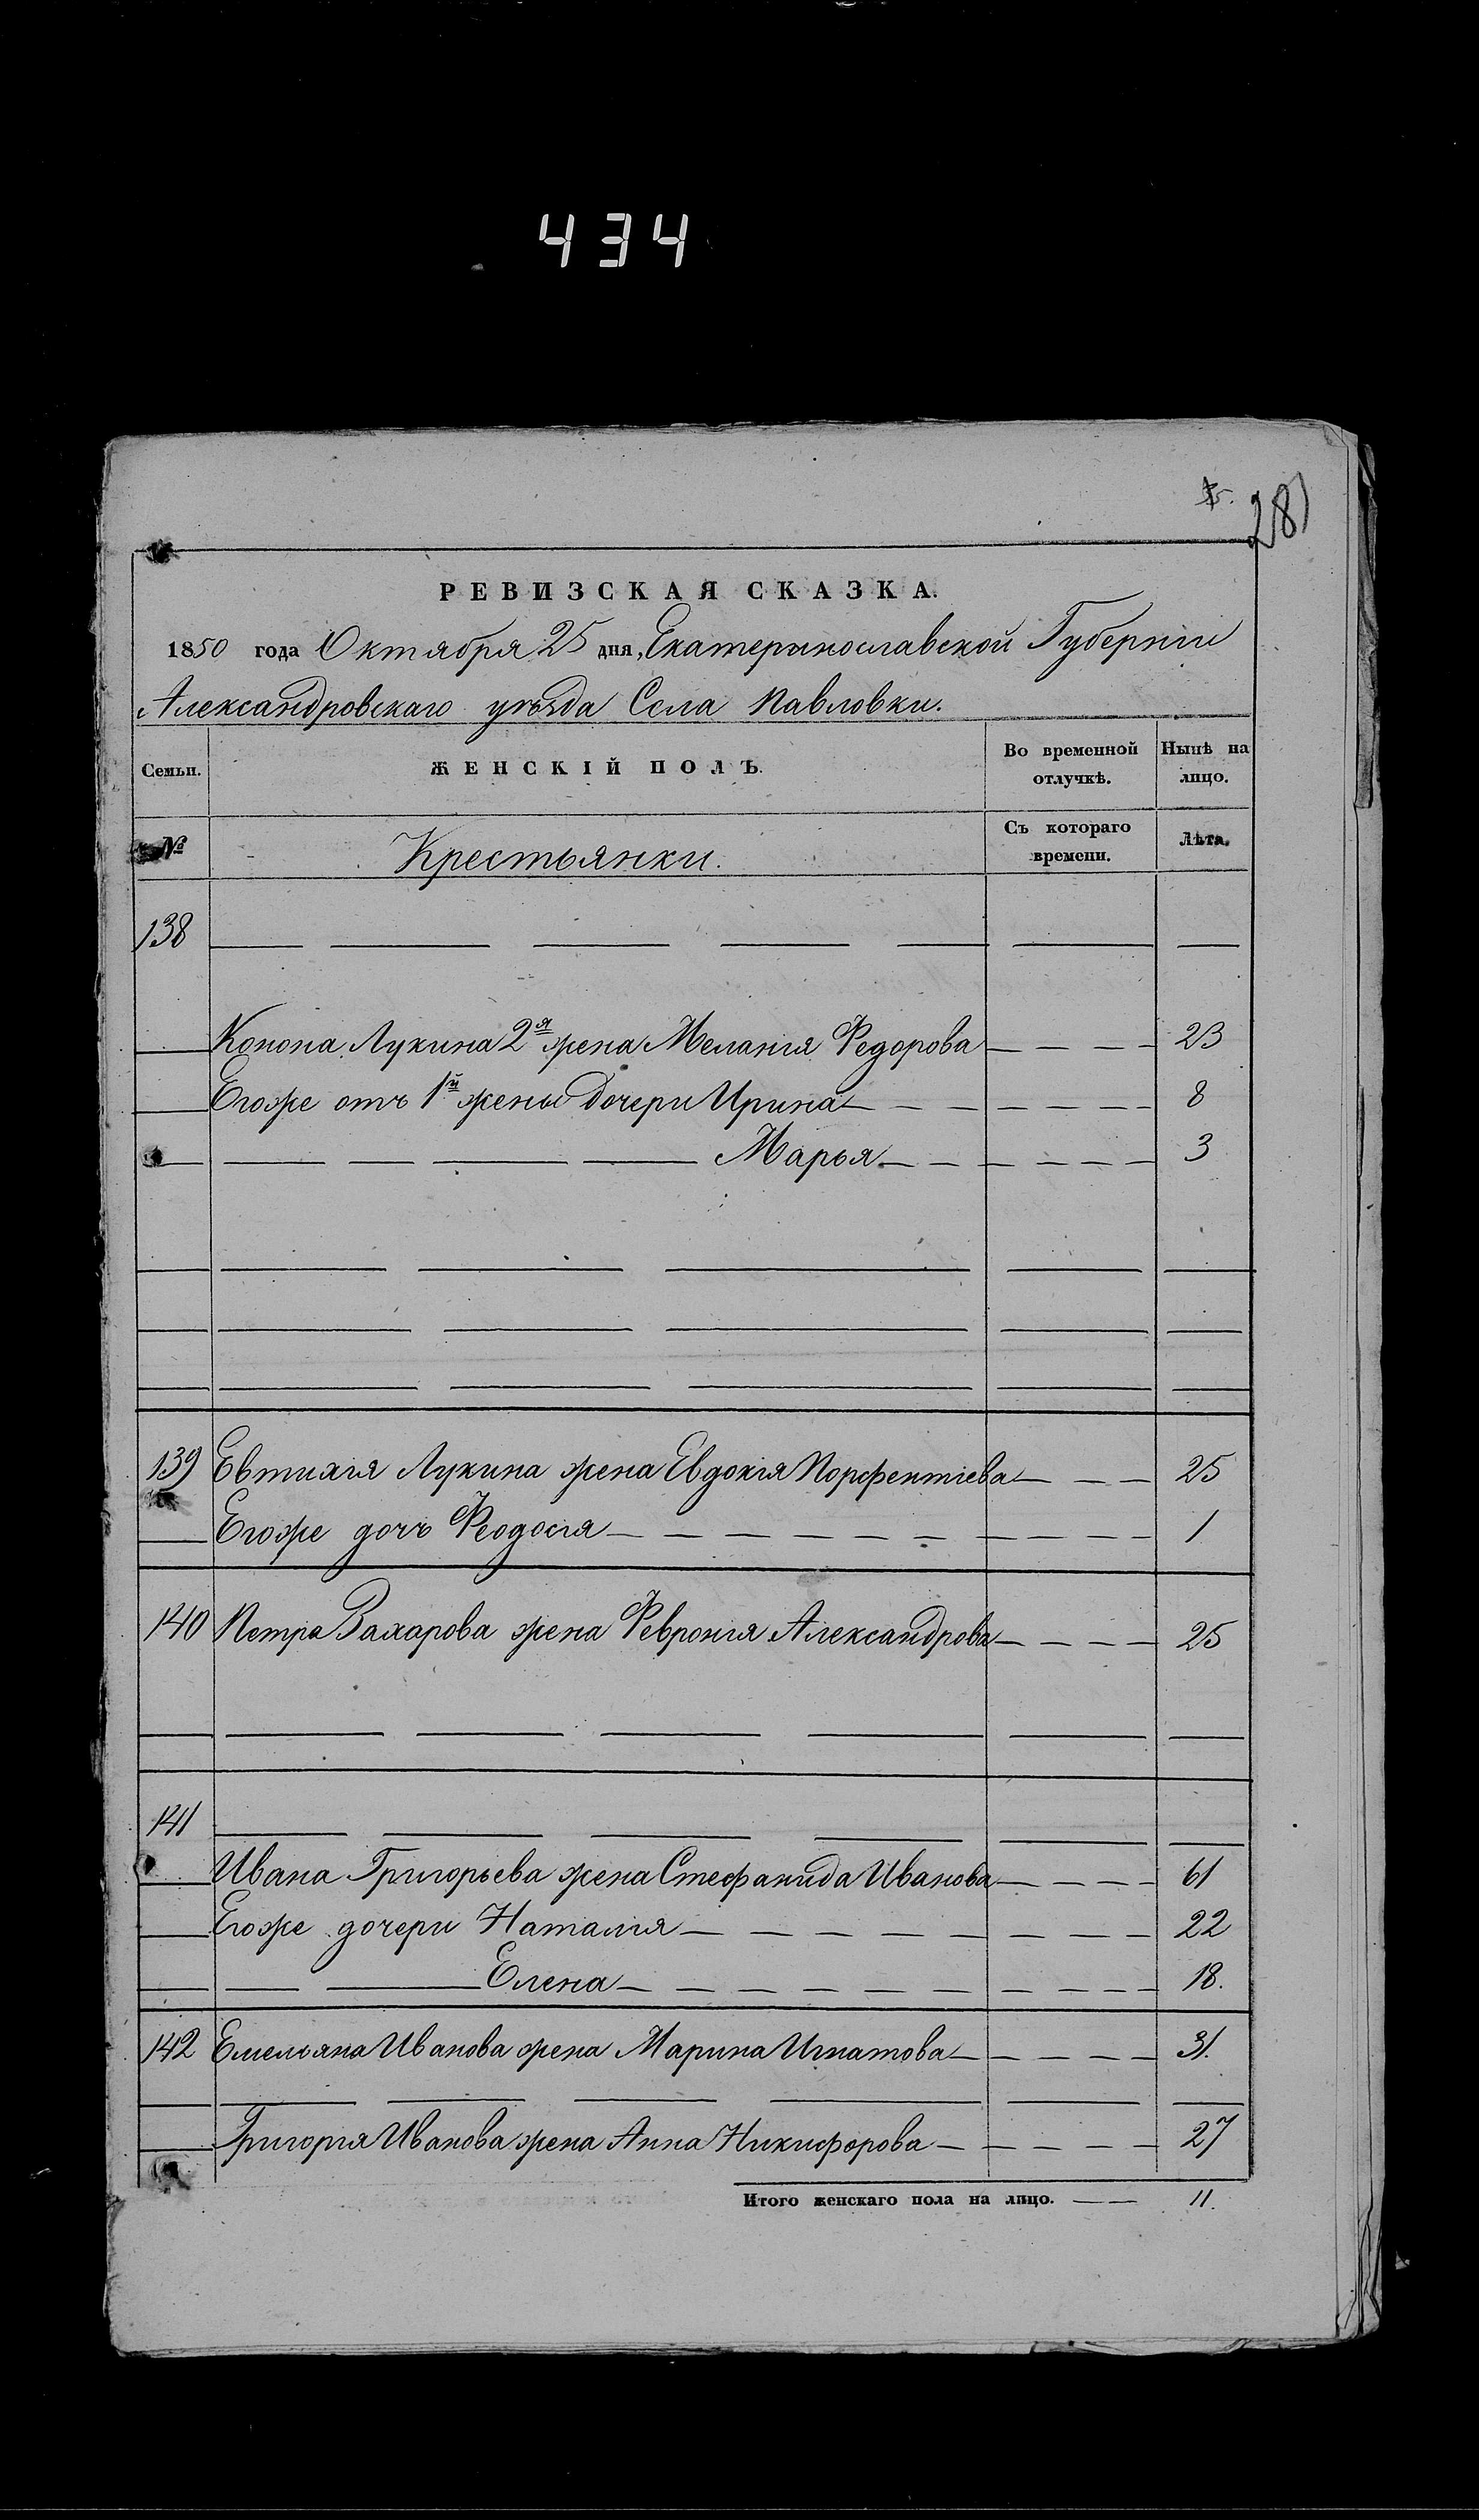 434
281
РЕВИЗСКАЯ СКАЗКА.
1850 года Октября 25 дня, Екатеринославской Губерніи
Александровскаго уѣзда Села Павловки.
Семьи.
ЖЕНСКІЙ ПОЛЪ.
Во временной отлучкѣ.
Нынѣ на лицо.
№
Крестьянки.
Съ котораго времени.
Лѣта.
138
Конона Лукина 2я жена Меланія Федорова 23
Егоже отъ 1й жены дочери Ирина 8
Марья 3
139 Евтихія Лукина жена Евдокія Порфентіева 25
Егоже дочь Феодосія 1
140 Петра Захарова жена Февронія Александрова 25
141
Ивана Григорьева жена Стефанида Иванова 61
Егоже дочери Наталія 22
Елена 18.
142 Емельяна Иванова жена Марина Игнатова 31.
Григорія Иванова жена Анна Никифорова 27
Итого женскаго пола на лицо. 11.